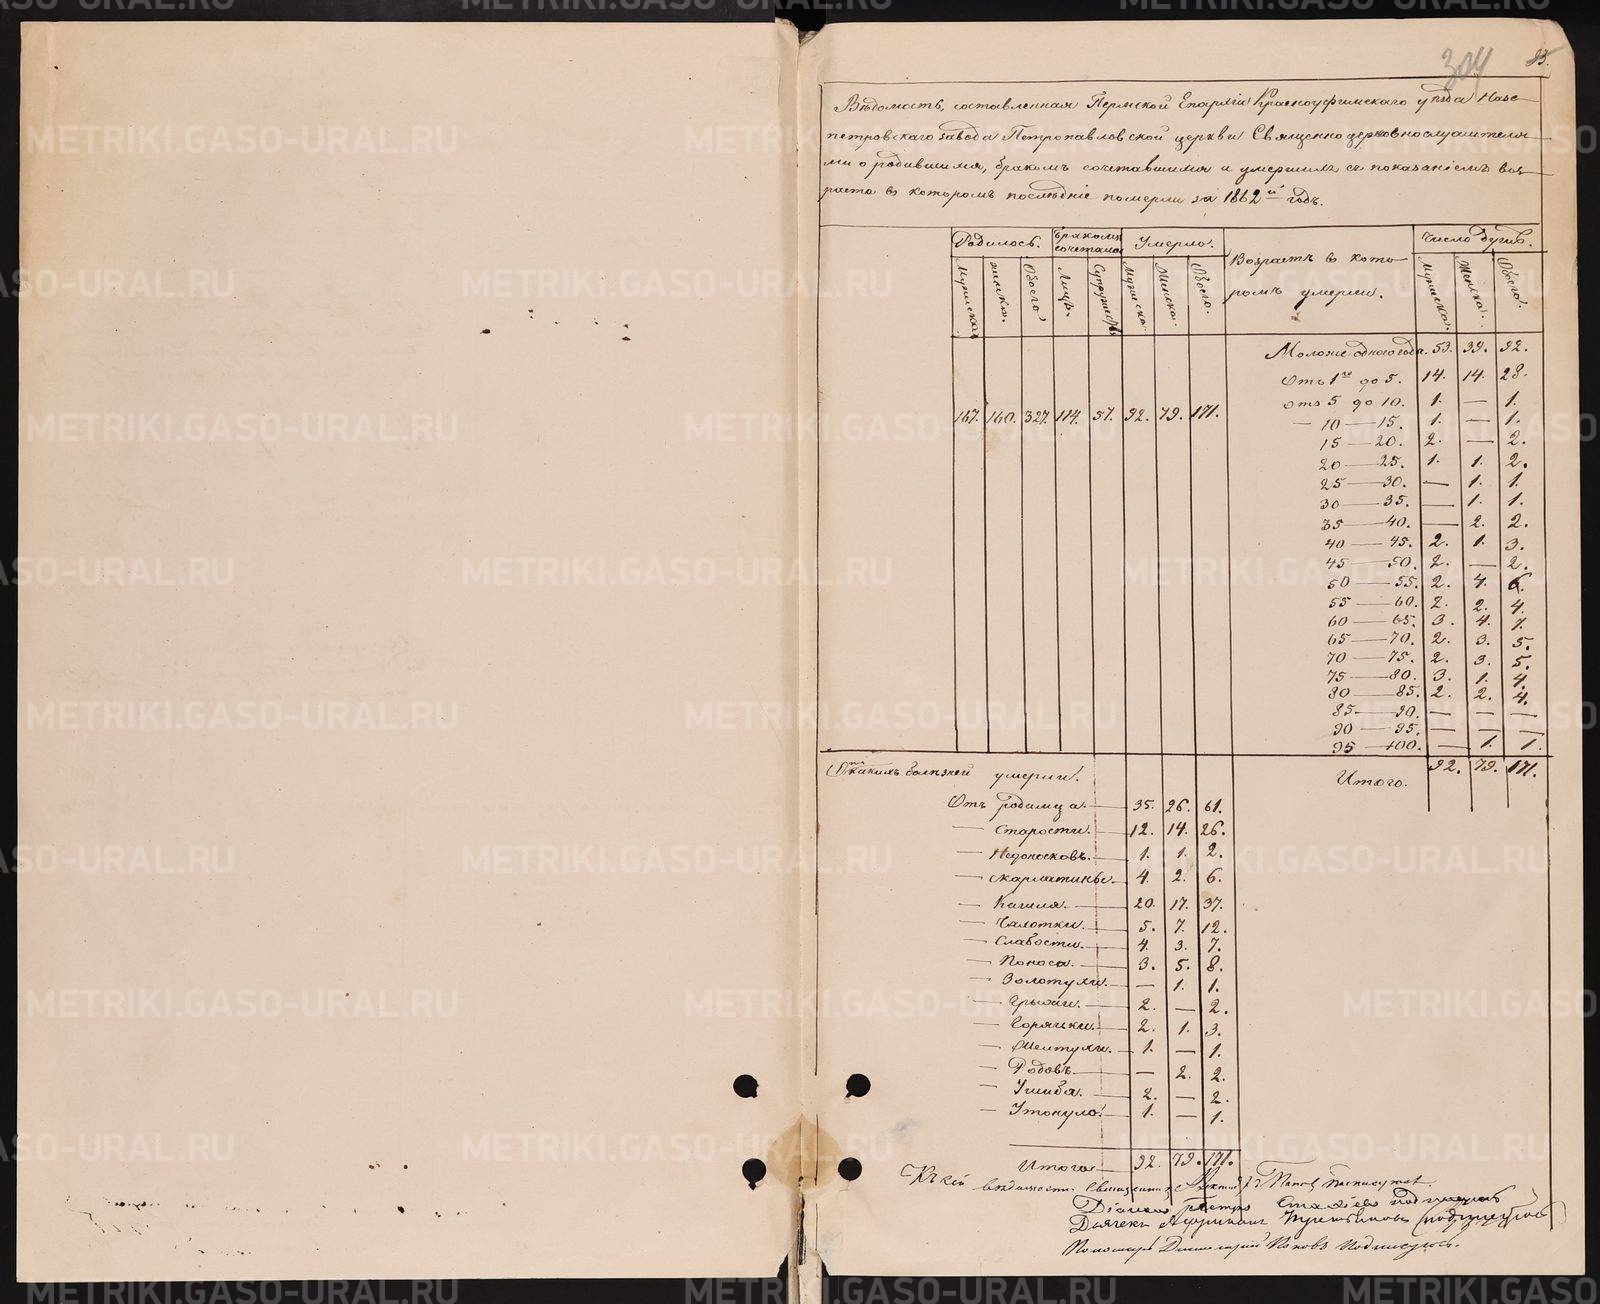 304
83.
Вѣдомость, составленная Пермской Епархіи Красноуфимскаго уѣзда Назе-
петровскаго завода Петропавловской церкви Священноцерковнослужителя-
ми о родившихся, бракомъ сочетавшихся и умершихъ съ показаніемъ воз-
раста въ которомъ послѣдніе померли за 1862й годъ.
Родилось. Бракомъ сочетано Умерло. Возрастъ въ кото- Число душъ.
Мужеска. Женска. Обоего Лицъ. Супружествъ Мужеска. Женска. Обоего. ромъ умерли. Мужеска. Женска. Обоего.
Моложе одного года. 53. 39. 92.
Отъ 1го до 5. 14. 14. 28.
отъ 5 до 10. 1. — 1.
167. 160. 327. 114. 57. 92. 79. 171.
— 10 — 15. 1. — 1.
15 — 20. 2. — 2.
20 — 25. 1. 1. 2.
25 — 30. — 1. 1.
30 — 35. — 1. 1.
35 — 40. — 2. 2.
40 — 45. 2. 1. 3.
45 — 50. 2. — 2.
50 — 55. 2. 4. 6.
55 — 60. 2. 2. 4.
60 — 65. 3. 4. 7.
65 — 70. 2. 3. 5.
70 — 75. 2. 3. 5.
75 — 80. 3. 1. 4.
80 — 85. 2. 2. 4.
85 — 90. — — —
90 — 95. — — —
95 — 100. — 1. 1.
Итого. 92. 79. 171.
Отъ какихъ болѣзней умерли.
Отъ Родимца. 35. 26. 61.
— Старости. 12. 14. 26.
— Недоносковъ. 1. 1. 2.
— Скарлатины 4. 2. 6.
— Кашля. 20. 17. 37.
— Чахотки. 5. 7. 12.
— Слабости. 4. 3. 7.
— Поноса. 3. 5. 8.
— Золотухи. — 1. 1.
— Грыжи. 2. — 2.
— Горячки. 2. 1. 3.
— Желтухи. 1. — 1.
— Родовъ. — 2. 2.
— Ушиба. 2. — 2.
— Утонуло. 1. — 1.
Итого 92. 79. 171.
Къ сей вѣдомости Священникъ Поповъ Подписуюсь.
Діаконъ Петръ подписуюсь
Дьячекъ подписуюсь
Пономарь Димитрій Поповъ Подписуюсь.
METRIKI.GASO-URAL.RU